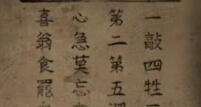 一敲四牲
第二第五
心急莫忘
喜翁食罷